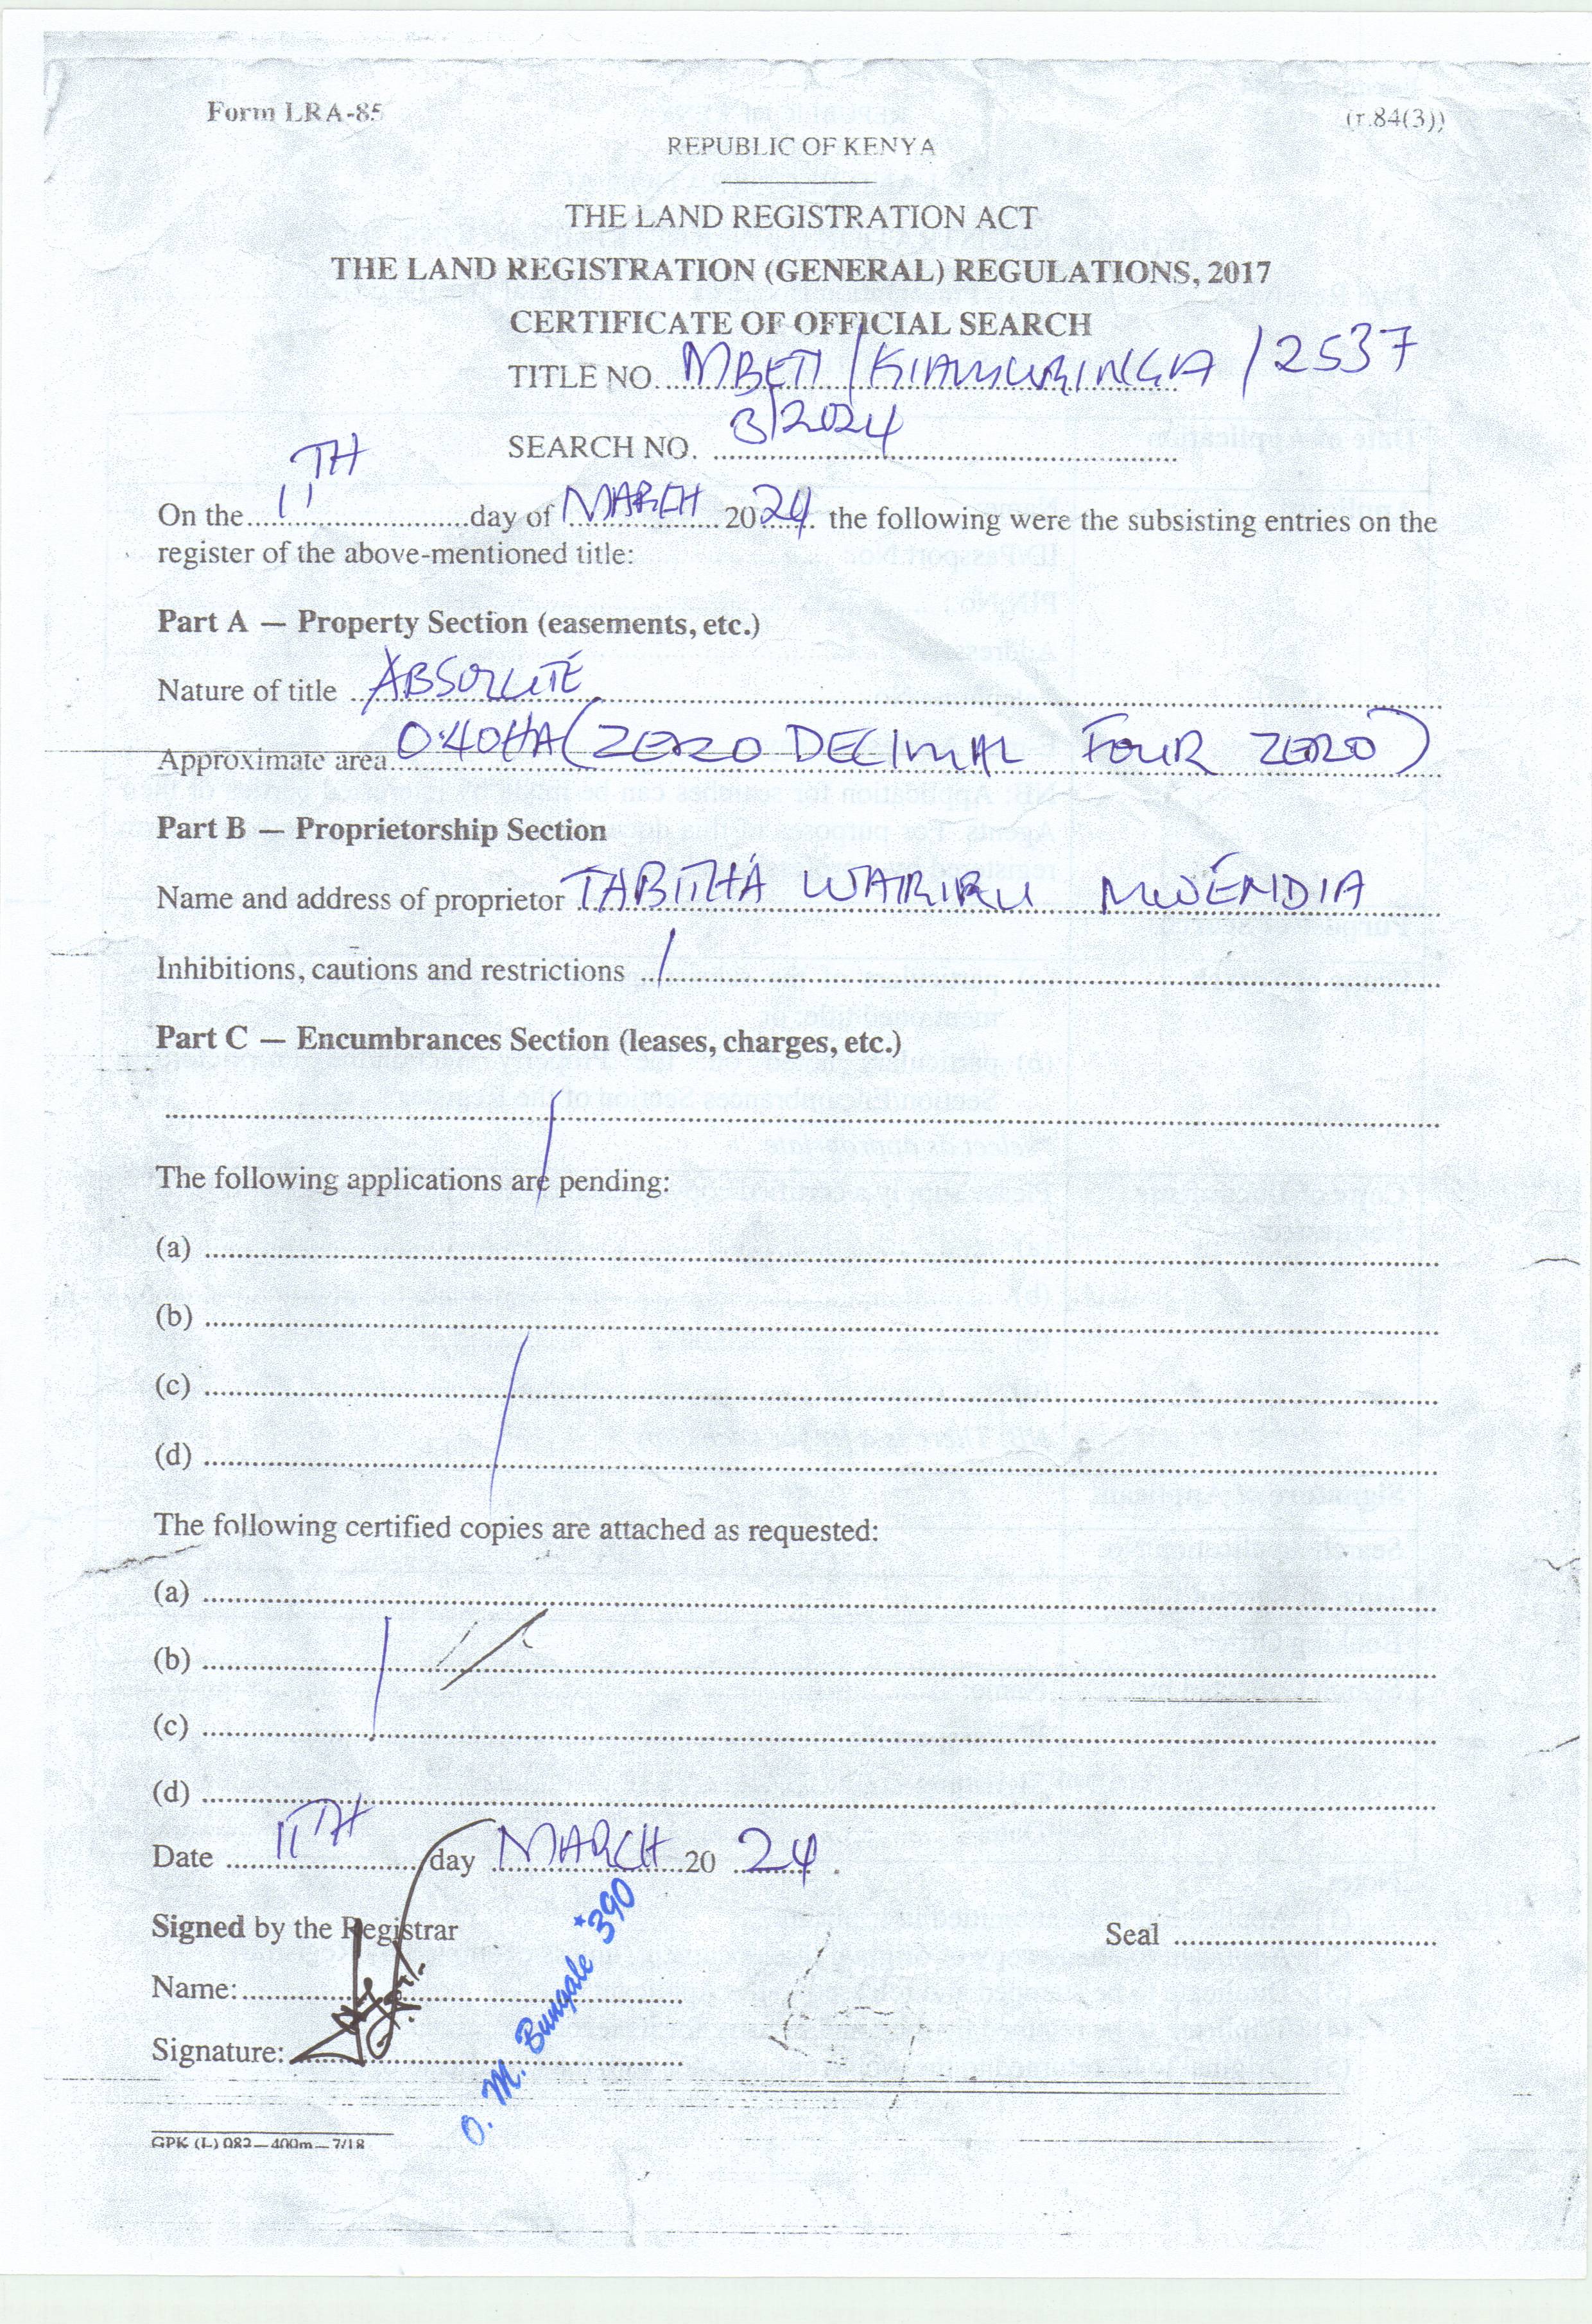 Form LRA-85 (r.84(3))
REPUBLIC OF KENYA
THE LAND REGISTRATION ACT
THE LAND REGISTRATION (GENERAL) REGULATIONS, 2017
CERTIFICATE OF OFFICIAL SEARCH
TITLE NO. MBETI/KIAMURINGA/2537
SEARCH NO. 3/2024
On the 11TH day of MARCH 2024 the following were the subsisting entries on the
register of the above-mentioned title:
Part A — Property Section (easements, etc.)
Nature of title ABSOLUTE
Approximate area 0.40HA (ZERO DECIMAL FOUR ZERO)
Part B — Proprietorship Section
Name and address of proprietor TABITHA WARIRU MWENDIA
Inhibitions, cautions and restrictions /
Part C — Encumbrances Section (leases, charges, etc.)
The following applications are pending:
(a)
(b)
(c)
(d)
The following certified copies are attached as requested:
(a)
(b)
(c)
(d)
Date 11TH day MARCH 2024.
Signed by the Registrar Seal
Name:
Signature:
O. M. Bungale *390
GPK (L) 082—400m—7/18